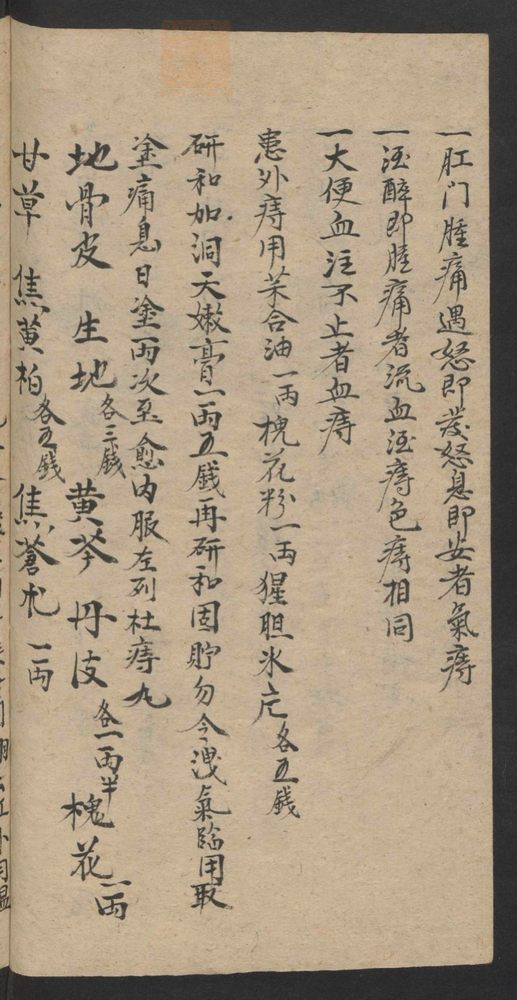 一肛门腫痛遇怒即发怒息即安者氣痔
一酒醉即腫痛者流血酒痔色痔相同
一大便血注不止者血痔
患外痔用茉合油一両槐花粉一両猩胆氷片各五錢
研和加洞天嫩膏一両五錢再研和固貯勿令洩氣臨用取
塗痛息日塗一両次至愈内服左列杜痔丸
地骨皮　生地各三錢　黄芩　丹皮各一両半　槐花一両
甘草　焦黄柏各五錢　焦蒼朮一両